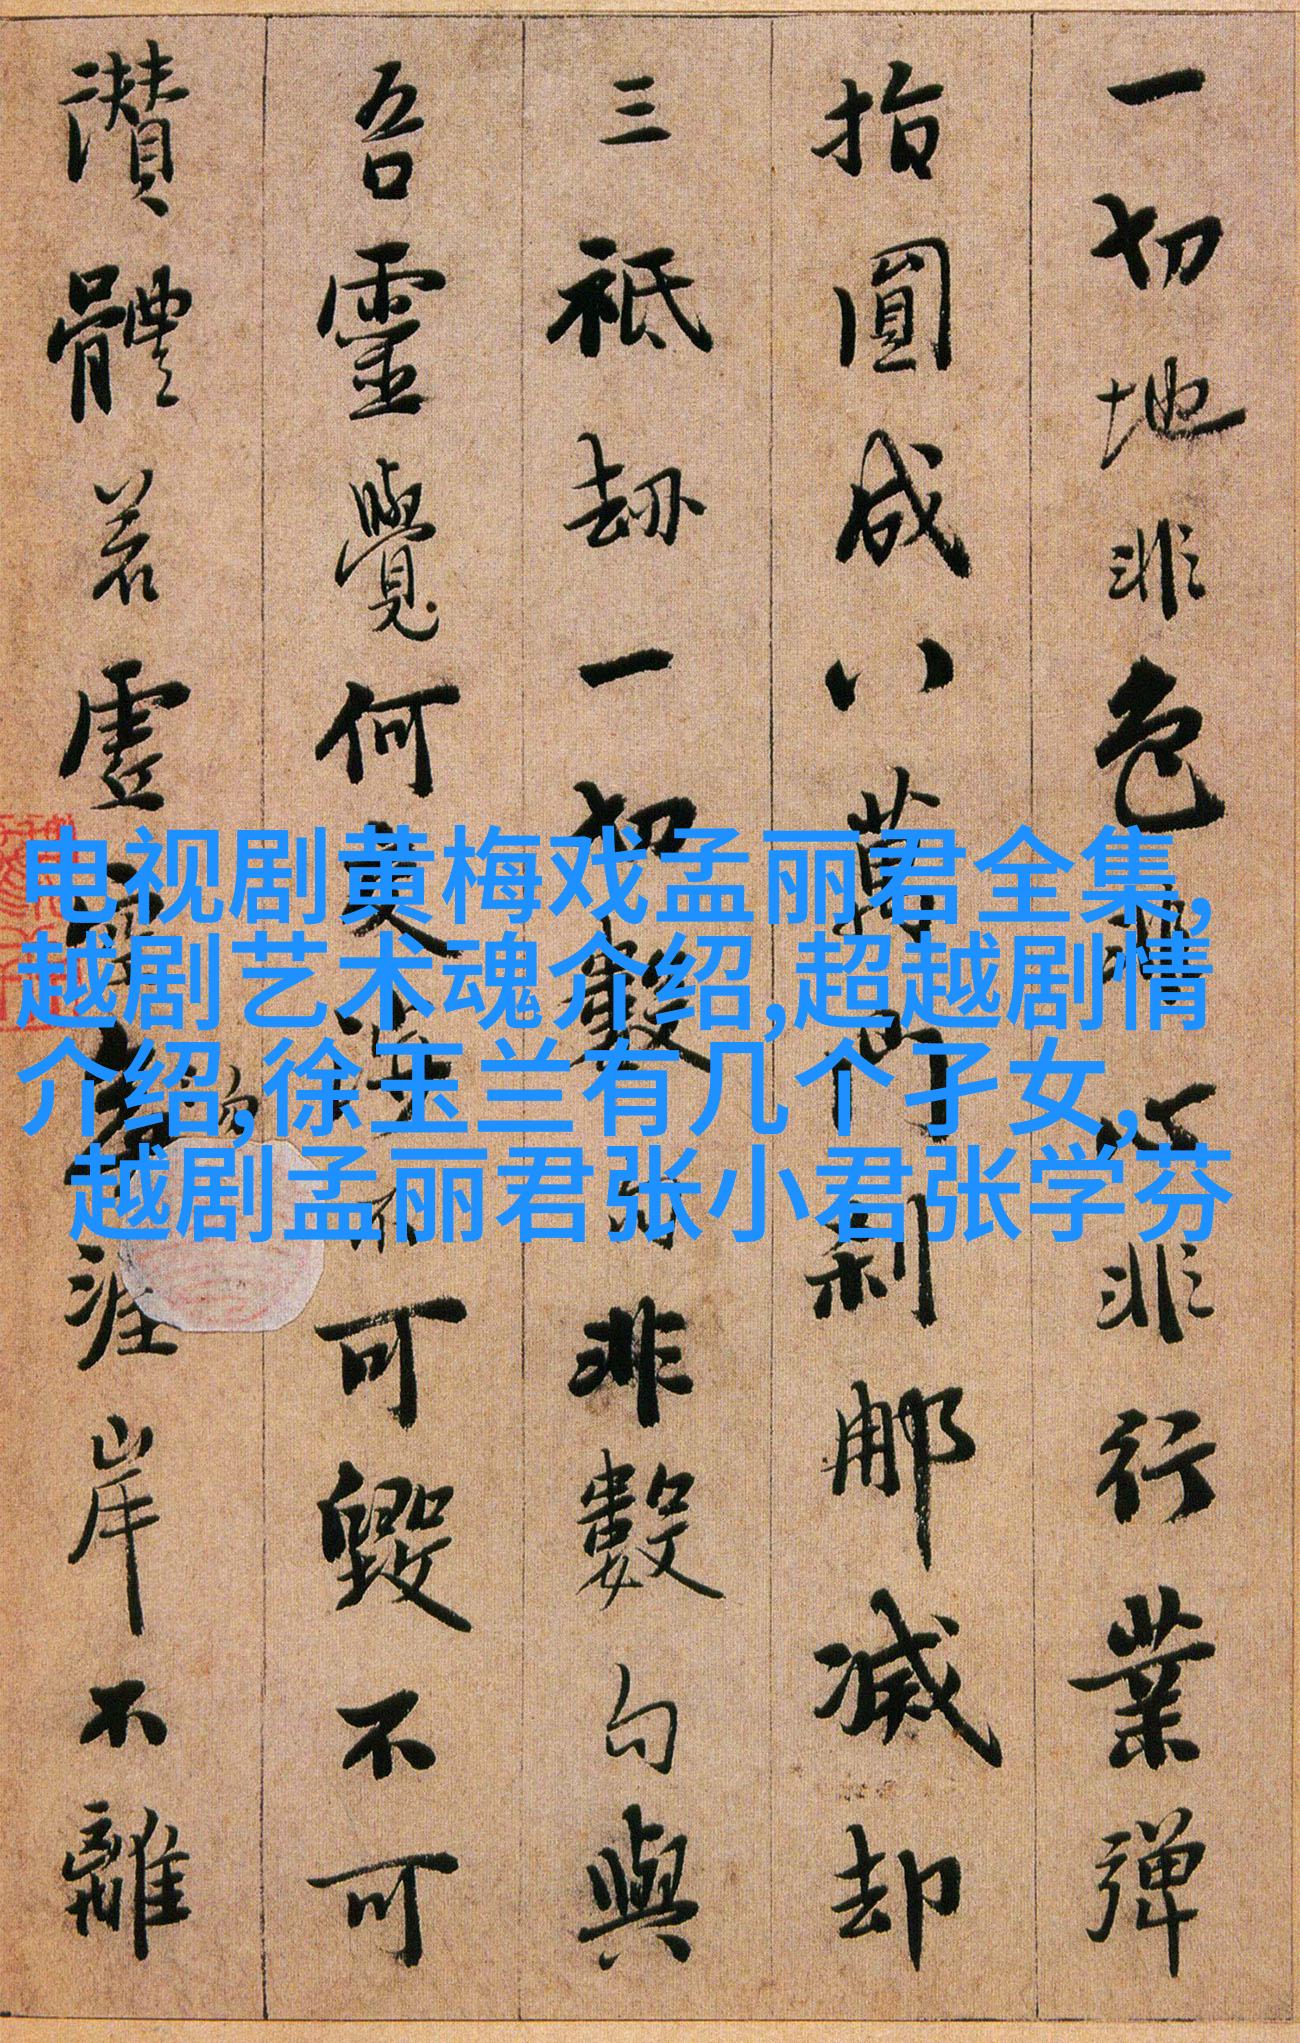 一切地非色非心非行業彈
指圓成八萬門刹那滅却
三祇劫一切數句非數句與
吾靈覺何交涉不可毀不可
讚體若虛空勿涯岸不離
电视剧黄梅戏孟丽君全集,
越剧艺术魂介绍,超越剧情
介绍,徐玉兰有几个孑女,
越剧孟丽君张小君张学芬